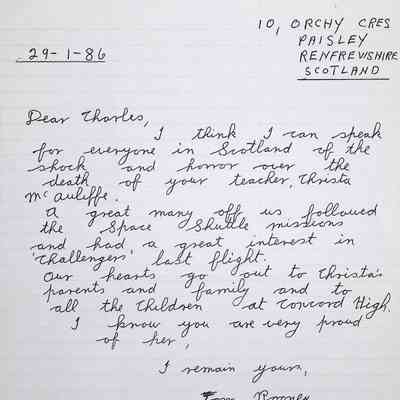 10, ORCHY CRES
PAISLEY
29-1-86 RENFREWSHIRE
SCOTLAND
Dear Charles,
I think I can speak
for everyone in Scotland of the
shock and horror over the
death of your teacher, Christa
McAuliffe.
A great many off us followed
the Space Shuttle missions
and had a great interest in
'Challengers' last flight.
Our hearts go out to Christa's
parents and family and to
all the Children at Concord High.
I know you are very proud
of her,
I remain yours,
Rooney